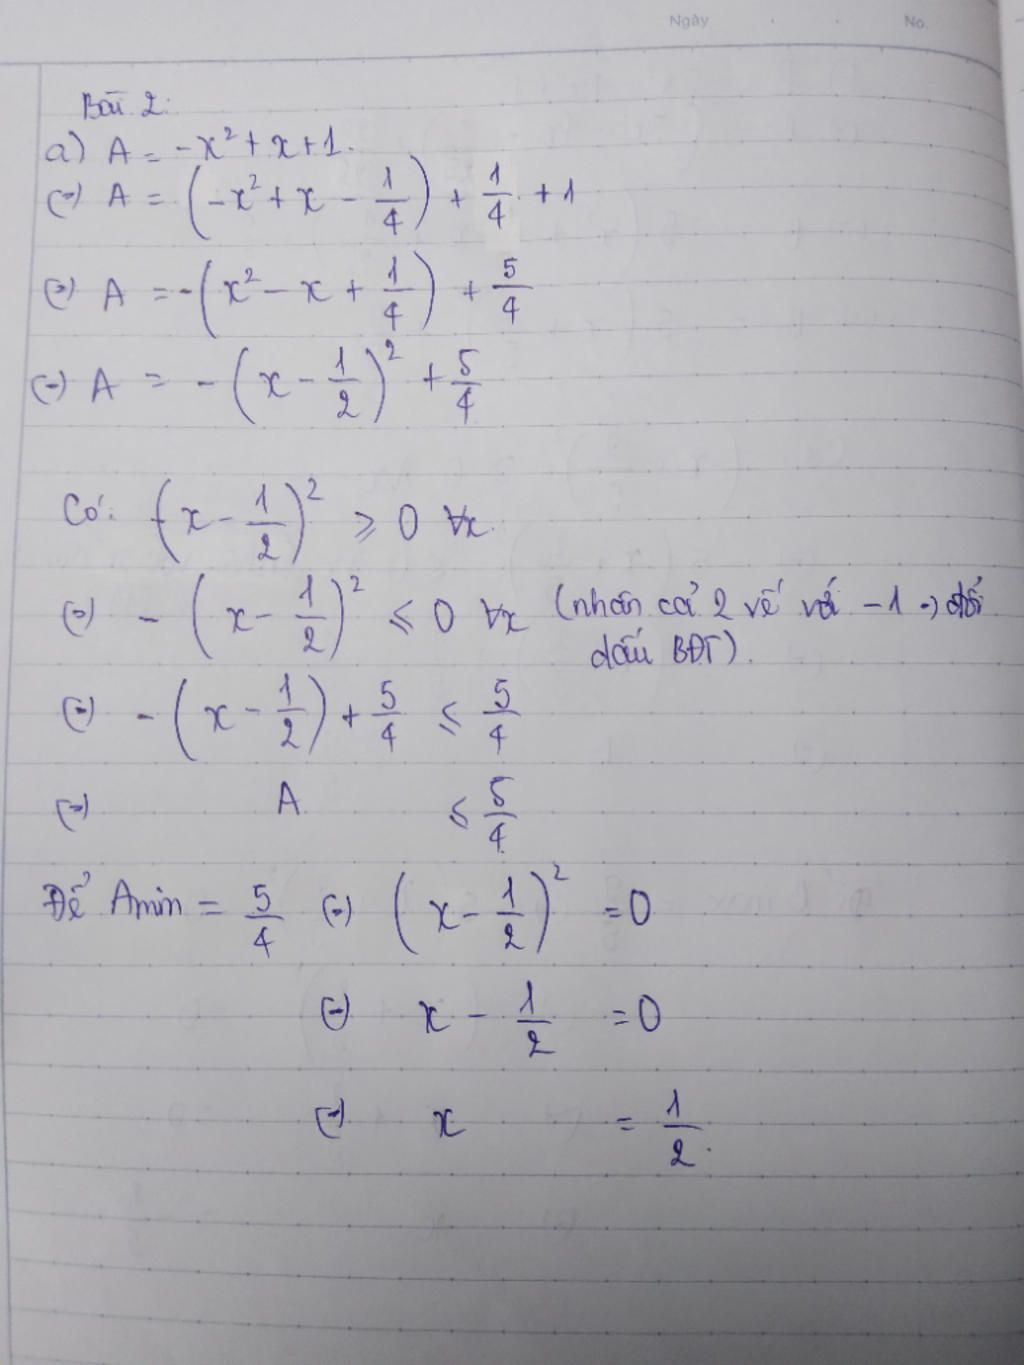 Ngày . . No.
Bài 2:
a) A = -x² + x + 1.
(=) A = (-x² + x - 1/4) + 1/4 + 1
(=) A = -(x² - x + 1/4) + 5/4
(=) A = -(x - 1/2)² + 5/4
Có: (x - 1/2)² ≥ 0 ∀x.
(=) -(x - 1/2)² ≤ 0 ∀x (nhân cả 2 vế với -1 → đổi
dấu BĐT).
(=) -(x - 1/2) + 5/4 ≤ 5/4
(=) A ≤ 5/4
Để Amin = 5/4 (=) (x - 1/2)² = 0
(=) x - 1/2 = 0
(=) x = 1/2.